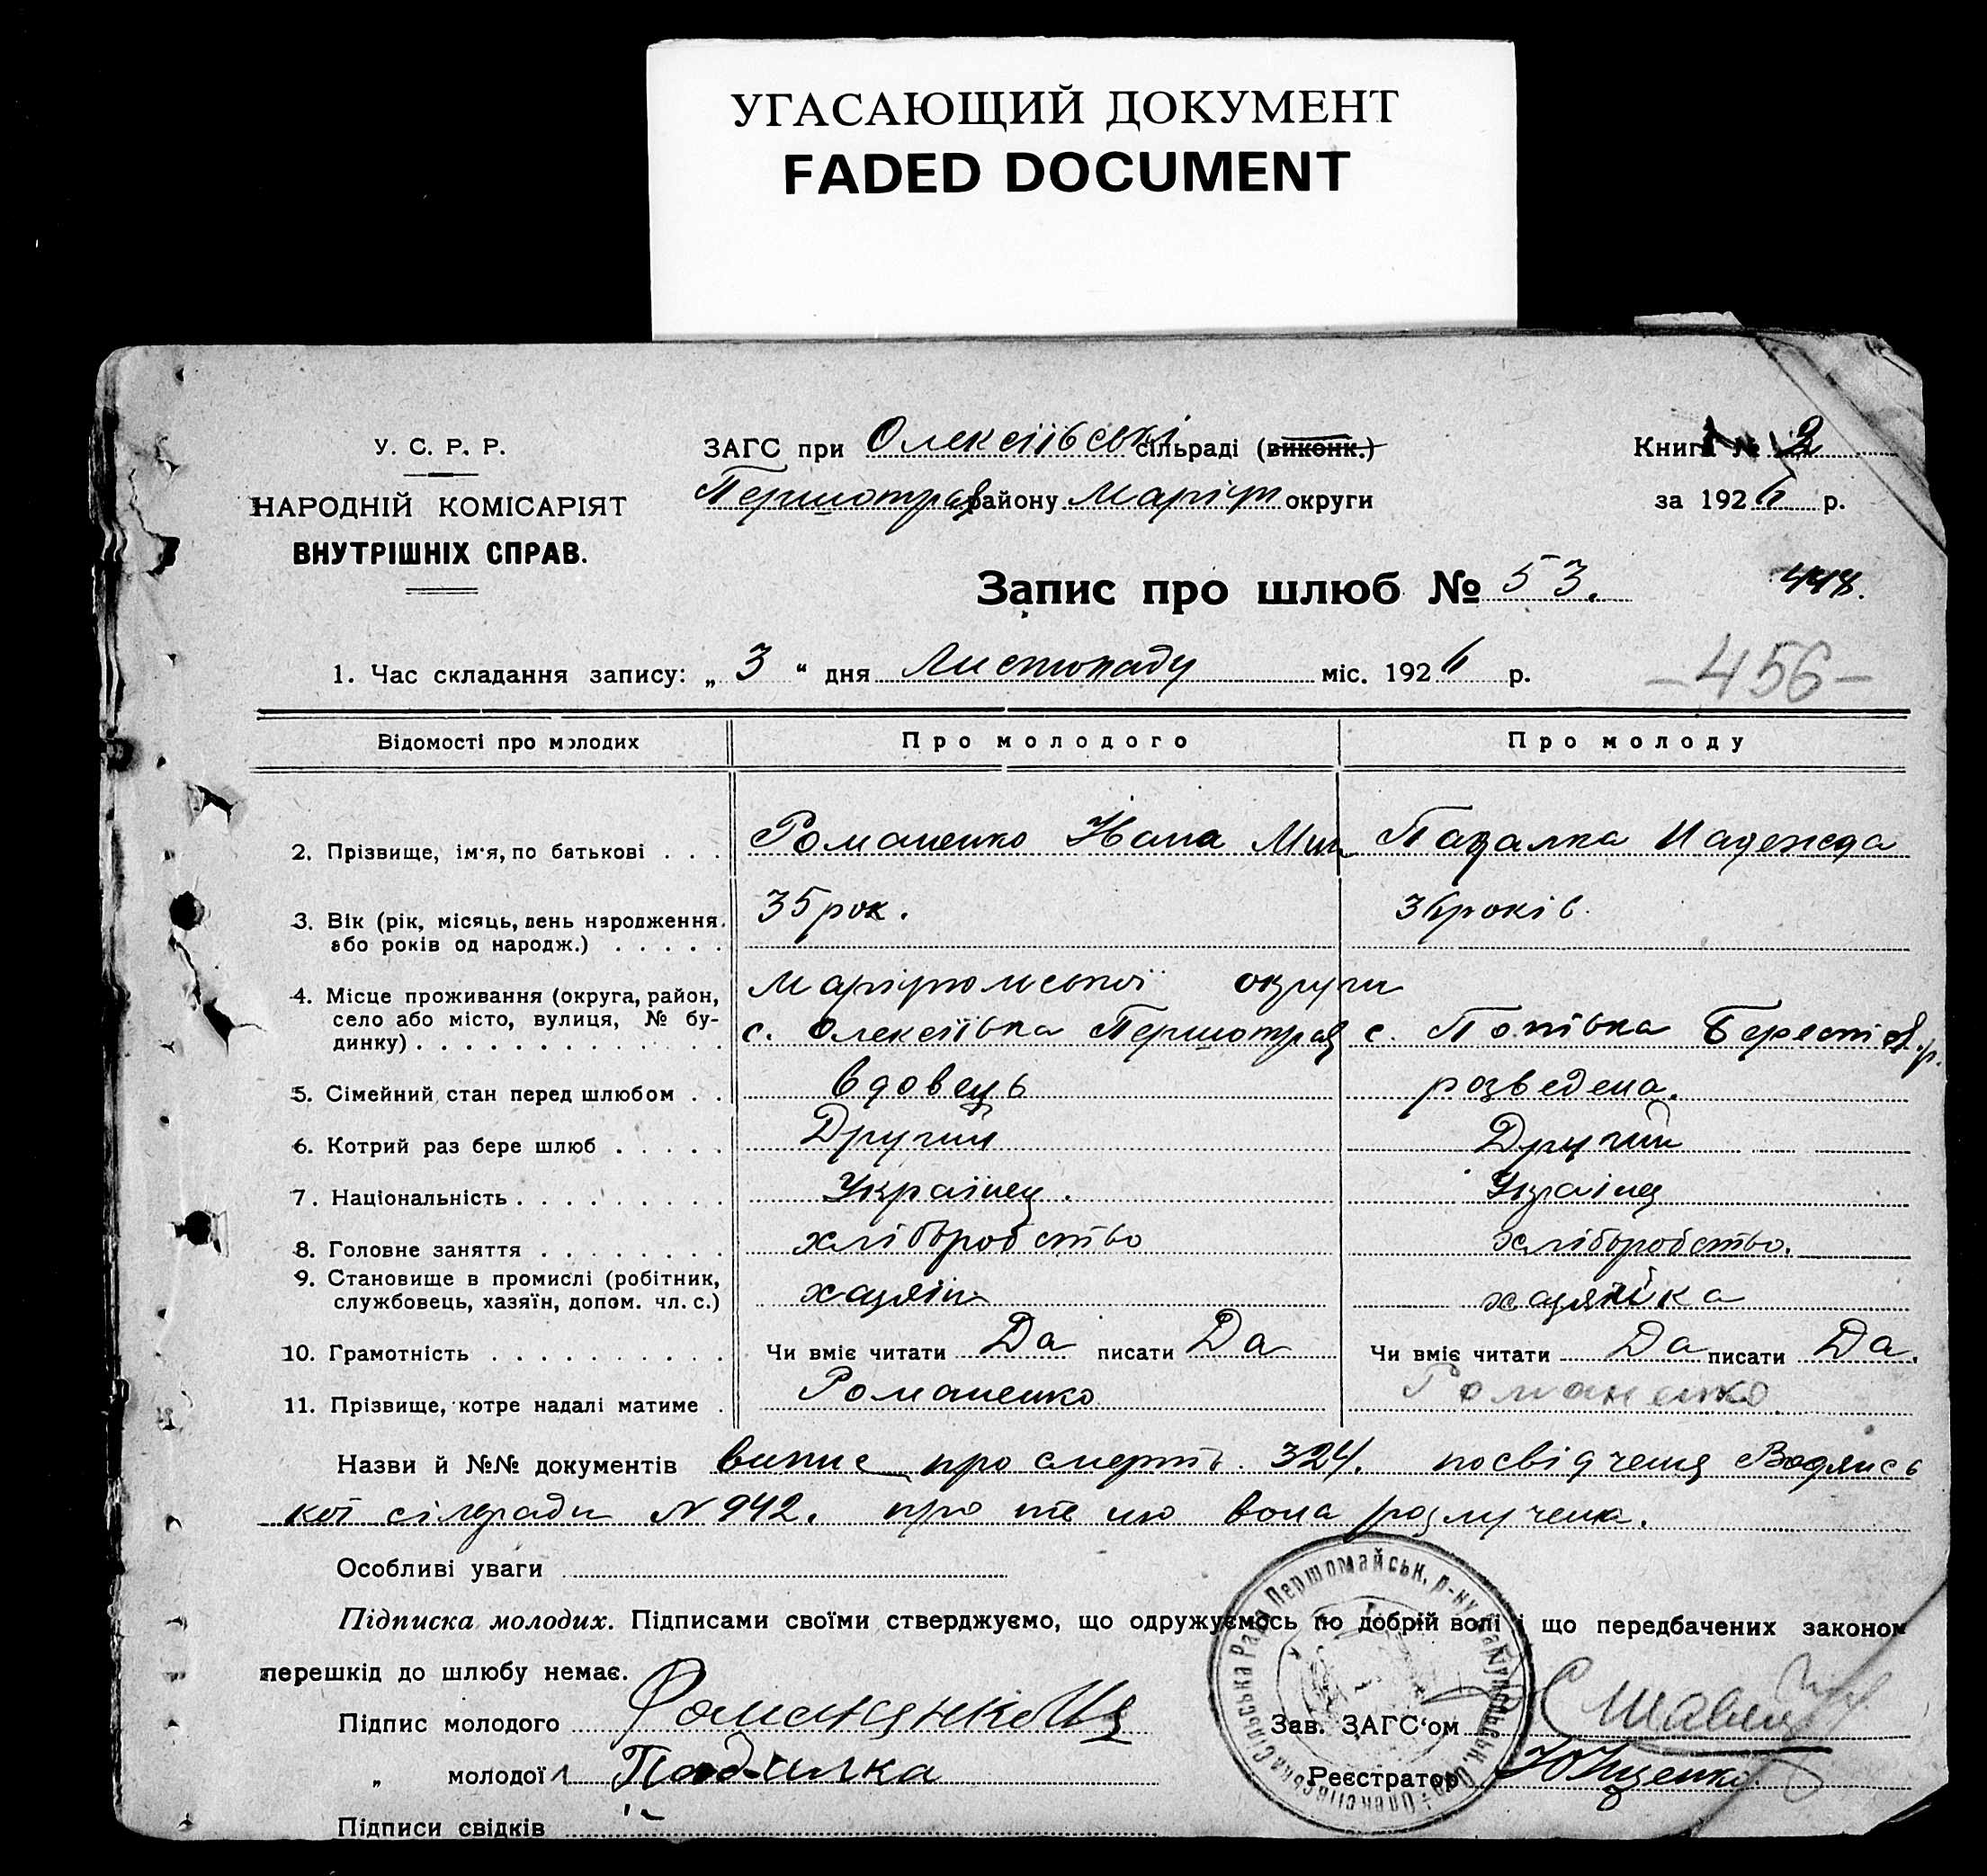 УГАСАЮЩИЙ ДОКУМЕНТ
FADED DOCUMENT
У. С. Р. Р.
НАРОДНІЙ КОМІСАРІЯТ
ВНУТРІШНІХ СПРАВ.
ЗАГС при Олексіївські сільраді (виконк.)
Першотрав району Маріуп округи
Книга № 2
за 1926 р.
Запис про шлюб № 53.
448.
1. Час складання запису: „ 3 “ дня Листопаду міс. 1926 р.
-456-
Відомості про молодих Про молодого Про молоду
2. Прізвище, ім'я, по батькові . . . Романенко Івана Падалка Надежда
3. Вік (рік, місяць, день народження, 35 рок. 36 років
або років од народж.) . . . . .
4. Місце проживання (округа, район, Маріюпольської округи
село або місто, вулиця, № бу- с. Олексіївка Першотрав с. Попівка Берестів. р.
динку) . . . . . . . . . . . . .
5. Сімейний стан перед шлюбом . . вдовець розведена.
6. Котрий раз бере шлюб . . . . . Другий Другий
7. Національність . . . . . . . . . Українец. Українец
8. Головне заняття . . . . . . . . хліборобство хліборобство.
9. Становище в промислі (робітник, хазяін хазяйка
службовець, хазяїн, допом. чл. с.)
10. Грамотність . . . . . . . . . . Чи вміє читати Да писати Да Чи вміє читати Да писати Да.
11. Прізвище, котре надалі матиме . Романенко Романенко
Назви й №№ документів випис про смерть 324. посвідченя Водянсь
кої сілради N 942. про те що вона розлучена.
Особливі уваги
Підписка молодих. Підписами своїми стверджуємо, що одружуємось по добрій волі і що передбачених законом
перешкід до шлюбу немає.
Підпис молодого Романенко
Зав. ЗАГС'ом
„ молодої Падалка
Реєстратор Ющенко.
Підписи свідків
Олексіївська Сільська Рада Першомайськ. р-ну Маріупольськ. Окр.